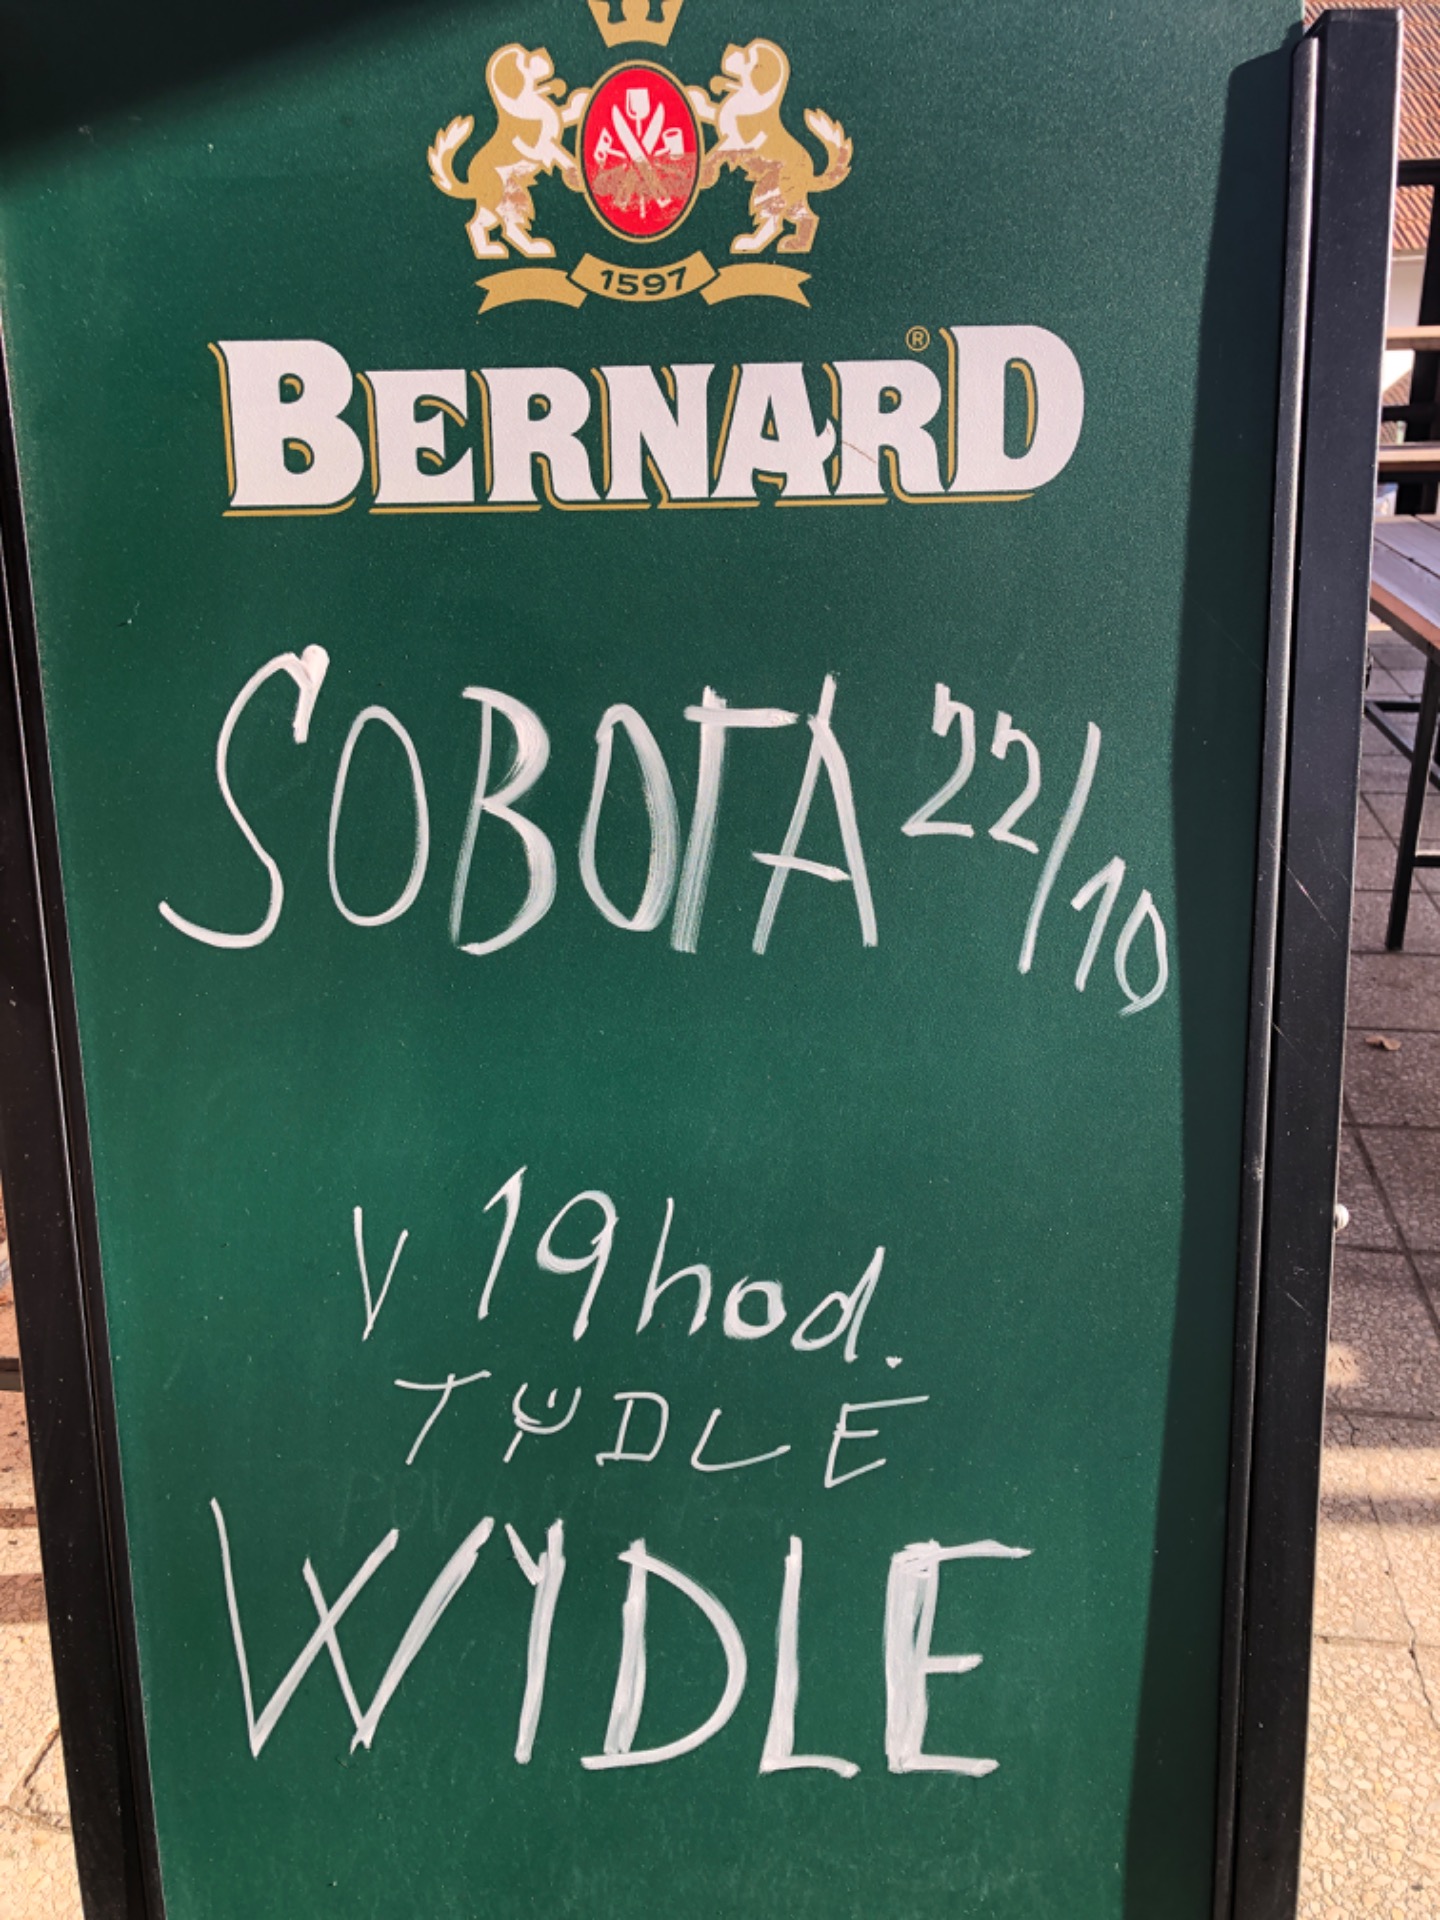 1597
BERNARD®
SOBOTA 22/10
V 19 hod.
TYDLE
WYDLE